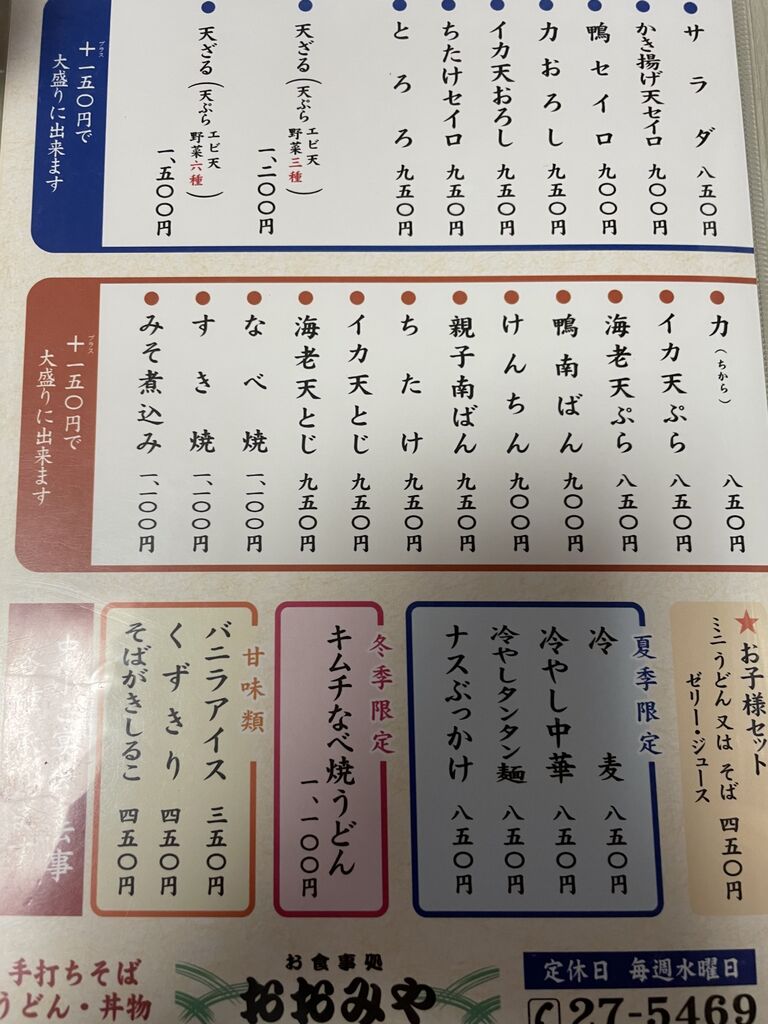 サラダ 八五〇円
かき揚げ天セイロ 九〇〇円
鴨セイロ 九〇〇円
力おろし 九五〇円
イカ天おろし 九五〇円
ちたけセイロ 九五〇円
とろろ 九五〇円
天ざる(天ぷら エビ天 野菜三種) 一、二〇〇円
天ざる(天ぷら エビ天 野菜六種) 一、五〇〇円
十一五〇円で
プラス
大盛りに出来ます
力(ちから) 八五〇円
イカ天ぷら 八五〇円
海老天ぷら 八五〇円
鴨南ばん 九〇〇円
けんちん 九〇〇円
親子南ばん 九五〇円
ちたけ 九五〇円
イカ天とじ 九五〇円
海老天とじ 九五〇円
なべ焼 一、一〇〇円
すき焼 一、一〇〇円
みそ煮込み 一、一〇〇円
十一五〇円で
プラス
大盛りに出来ます
★お子様セット
ミニうどん又はそば 四五〇円
ゼリー・ジュース
夏季限定
冷麦 八五〇円
冷やし中華 八五〇円
冷やしタンタン麺 八五〇円
ナスぶっかけ 八五〇円
冬季限定
キムチなべ焼うどん
一、一〇〇円
甘味類
バニラアイス 三五〇円
くずきり 四五〇円
そばがきしるこ 四五〇円
事
手打ちそば
うどん・丼物
お食事処
おおみや
定休日 毎週水曜日
27-5469